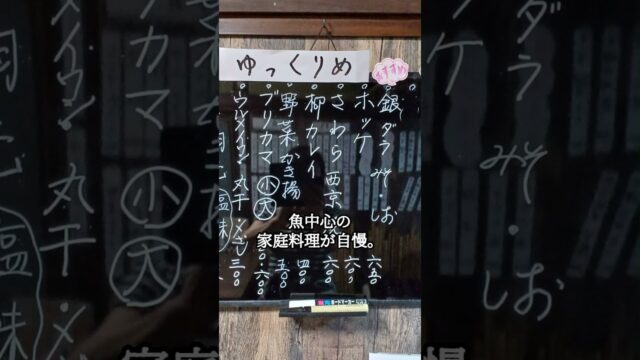 ゆっくりめ
おすすめ
銀ダラ みそ・しお 六五〇
ホッケ 六〇〇
さわら西京 六〇〇
柳カレイ 四〇〇
野菜かき揚 五〇〇
ブリカマ 小 大 六〇〇
丸干 三〇〇
塩味
魚中心の
家庭料理が自慢。